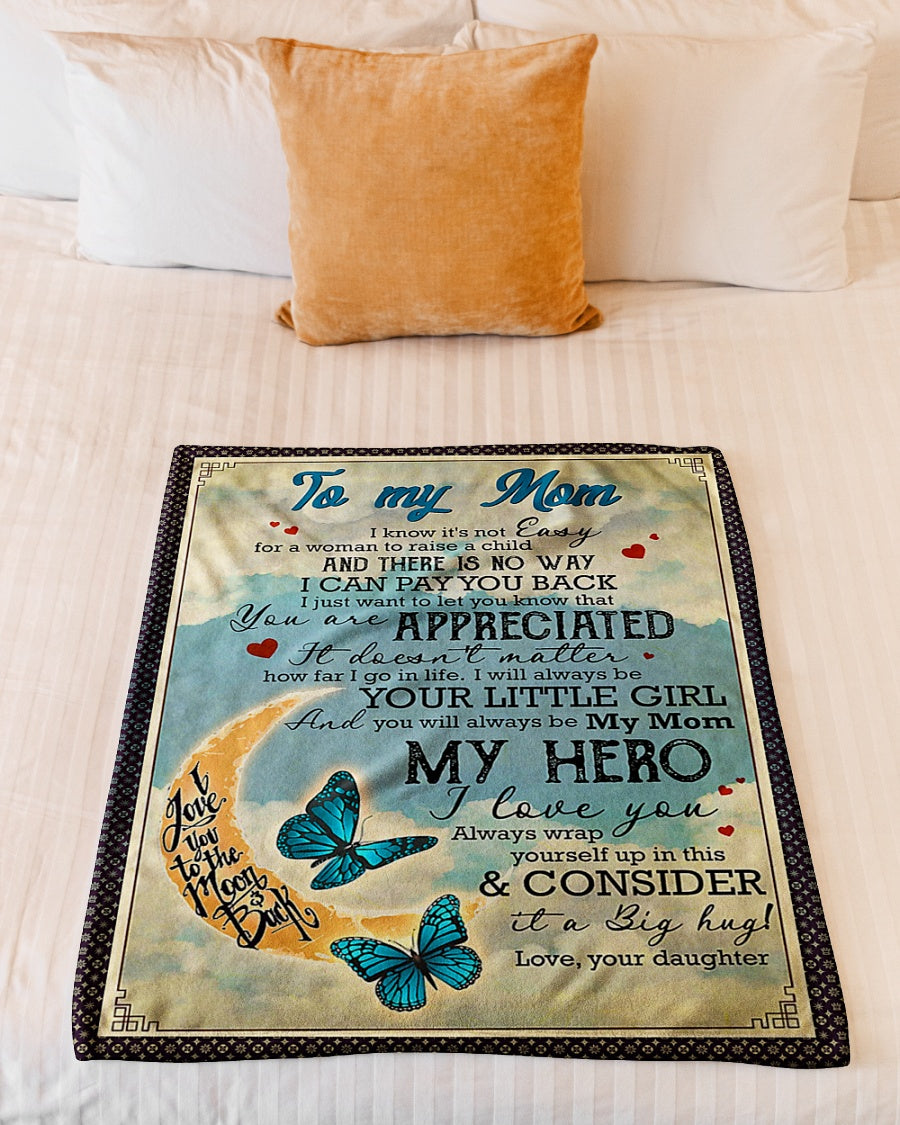 To my Mom
I know it's not Easy
for a woman to raise a child
AND THERE IS NO WAY
I CAN PAY YOU BACK
I just want to let you know that
You are APPRECIATED
It doesn't matter
how far I go in life. I will always be
YOUR LITTLE GIRL
And you will always be My Mom
MY HERO
I love you
Always wrap
yourself up in this
& CONSIDER
it a Big hug!
Love, your daughter
I
Love
you
to the
Moon
&
Back